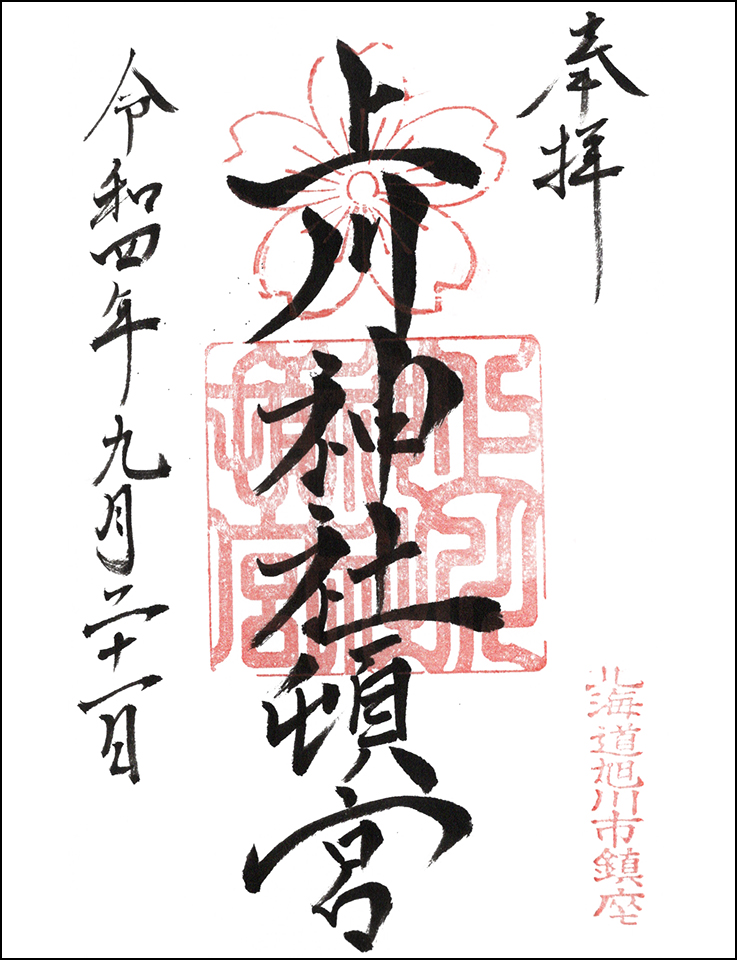 奉拝
北海道旭川市鎮座
上川神社頓宮
上川神社頓宮
令和四年九月二十一日